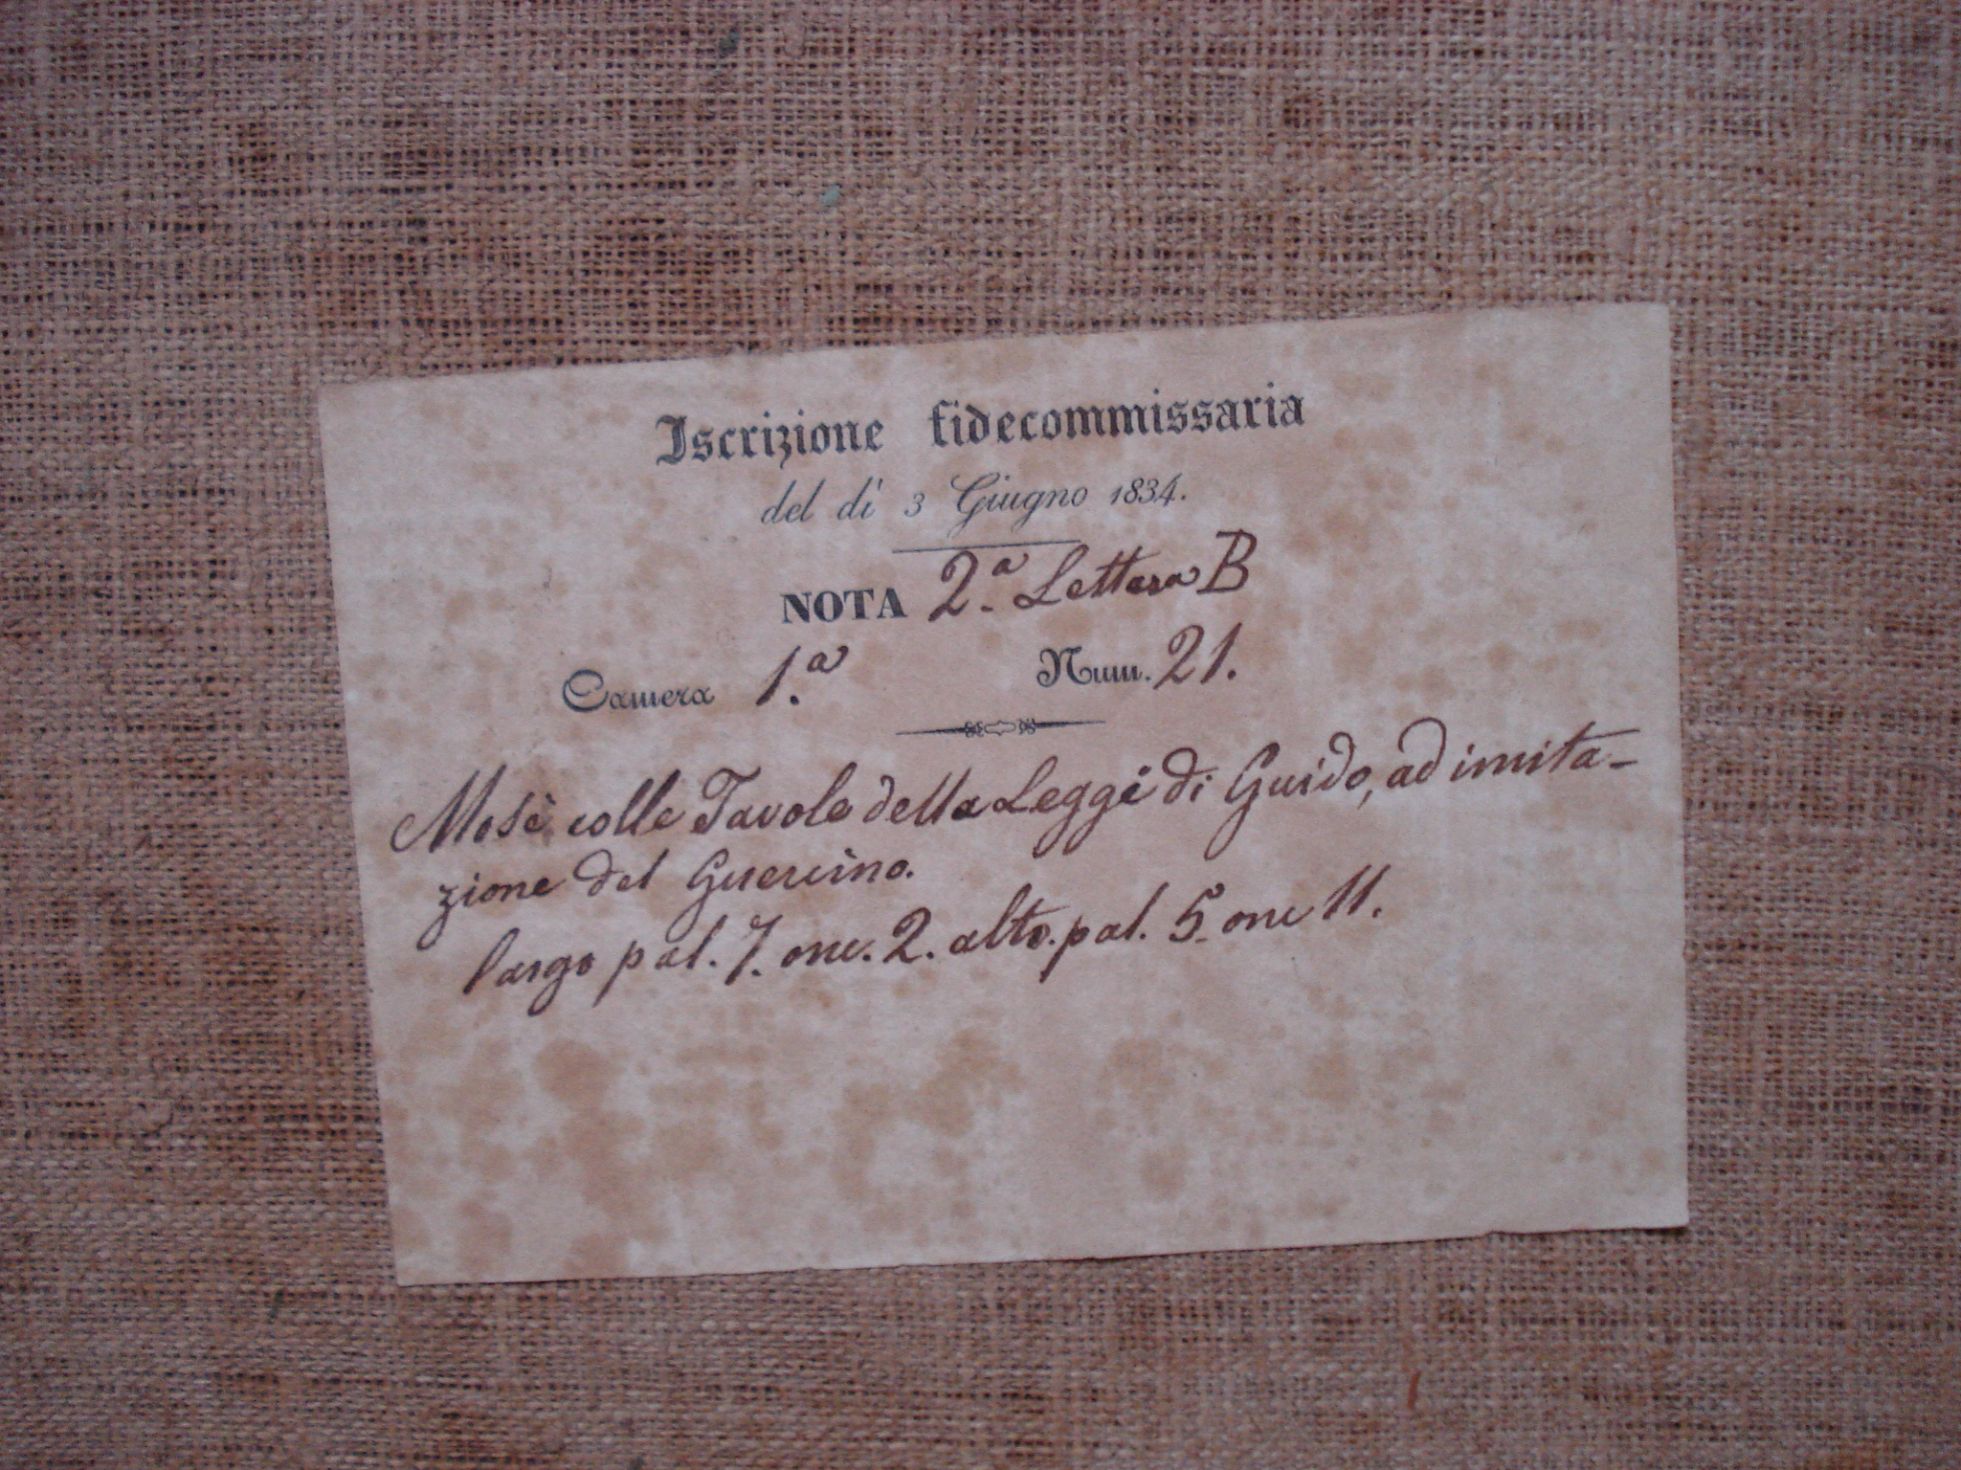 Iscrizione fidecommissaria
del dì 3 Giugno 1834.
NOTA 2.a Lettera B
Camera 1.a Num. 21.
Mosè colle Tavole della Legge di Guido, ad imita-
zione del Guercino.
largo pal. 7. onc. 2. alto. pal. 5. onc 11.